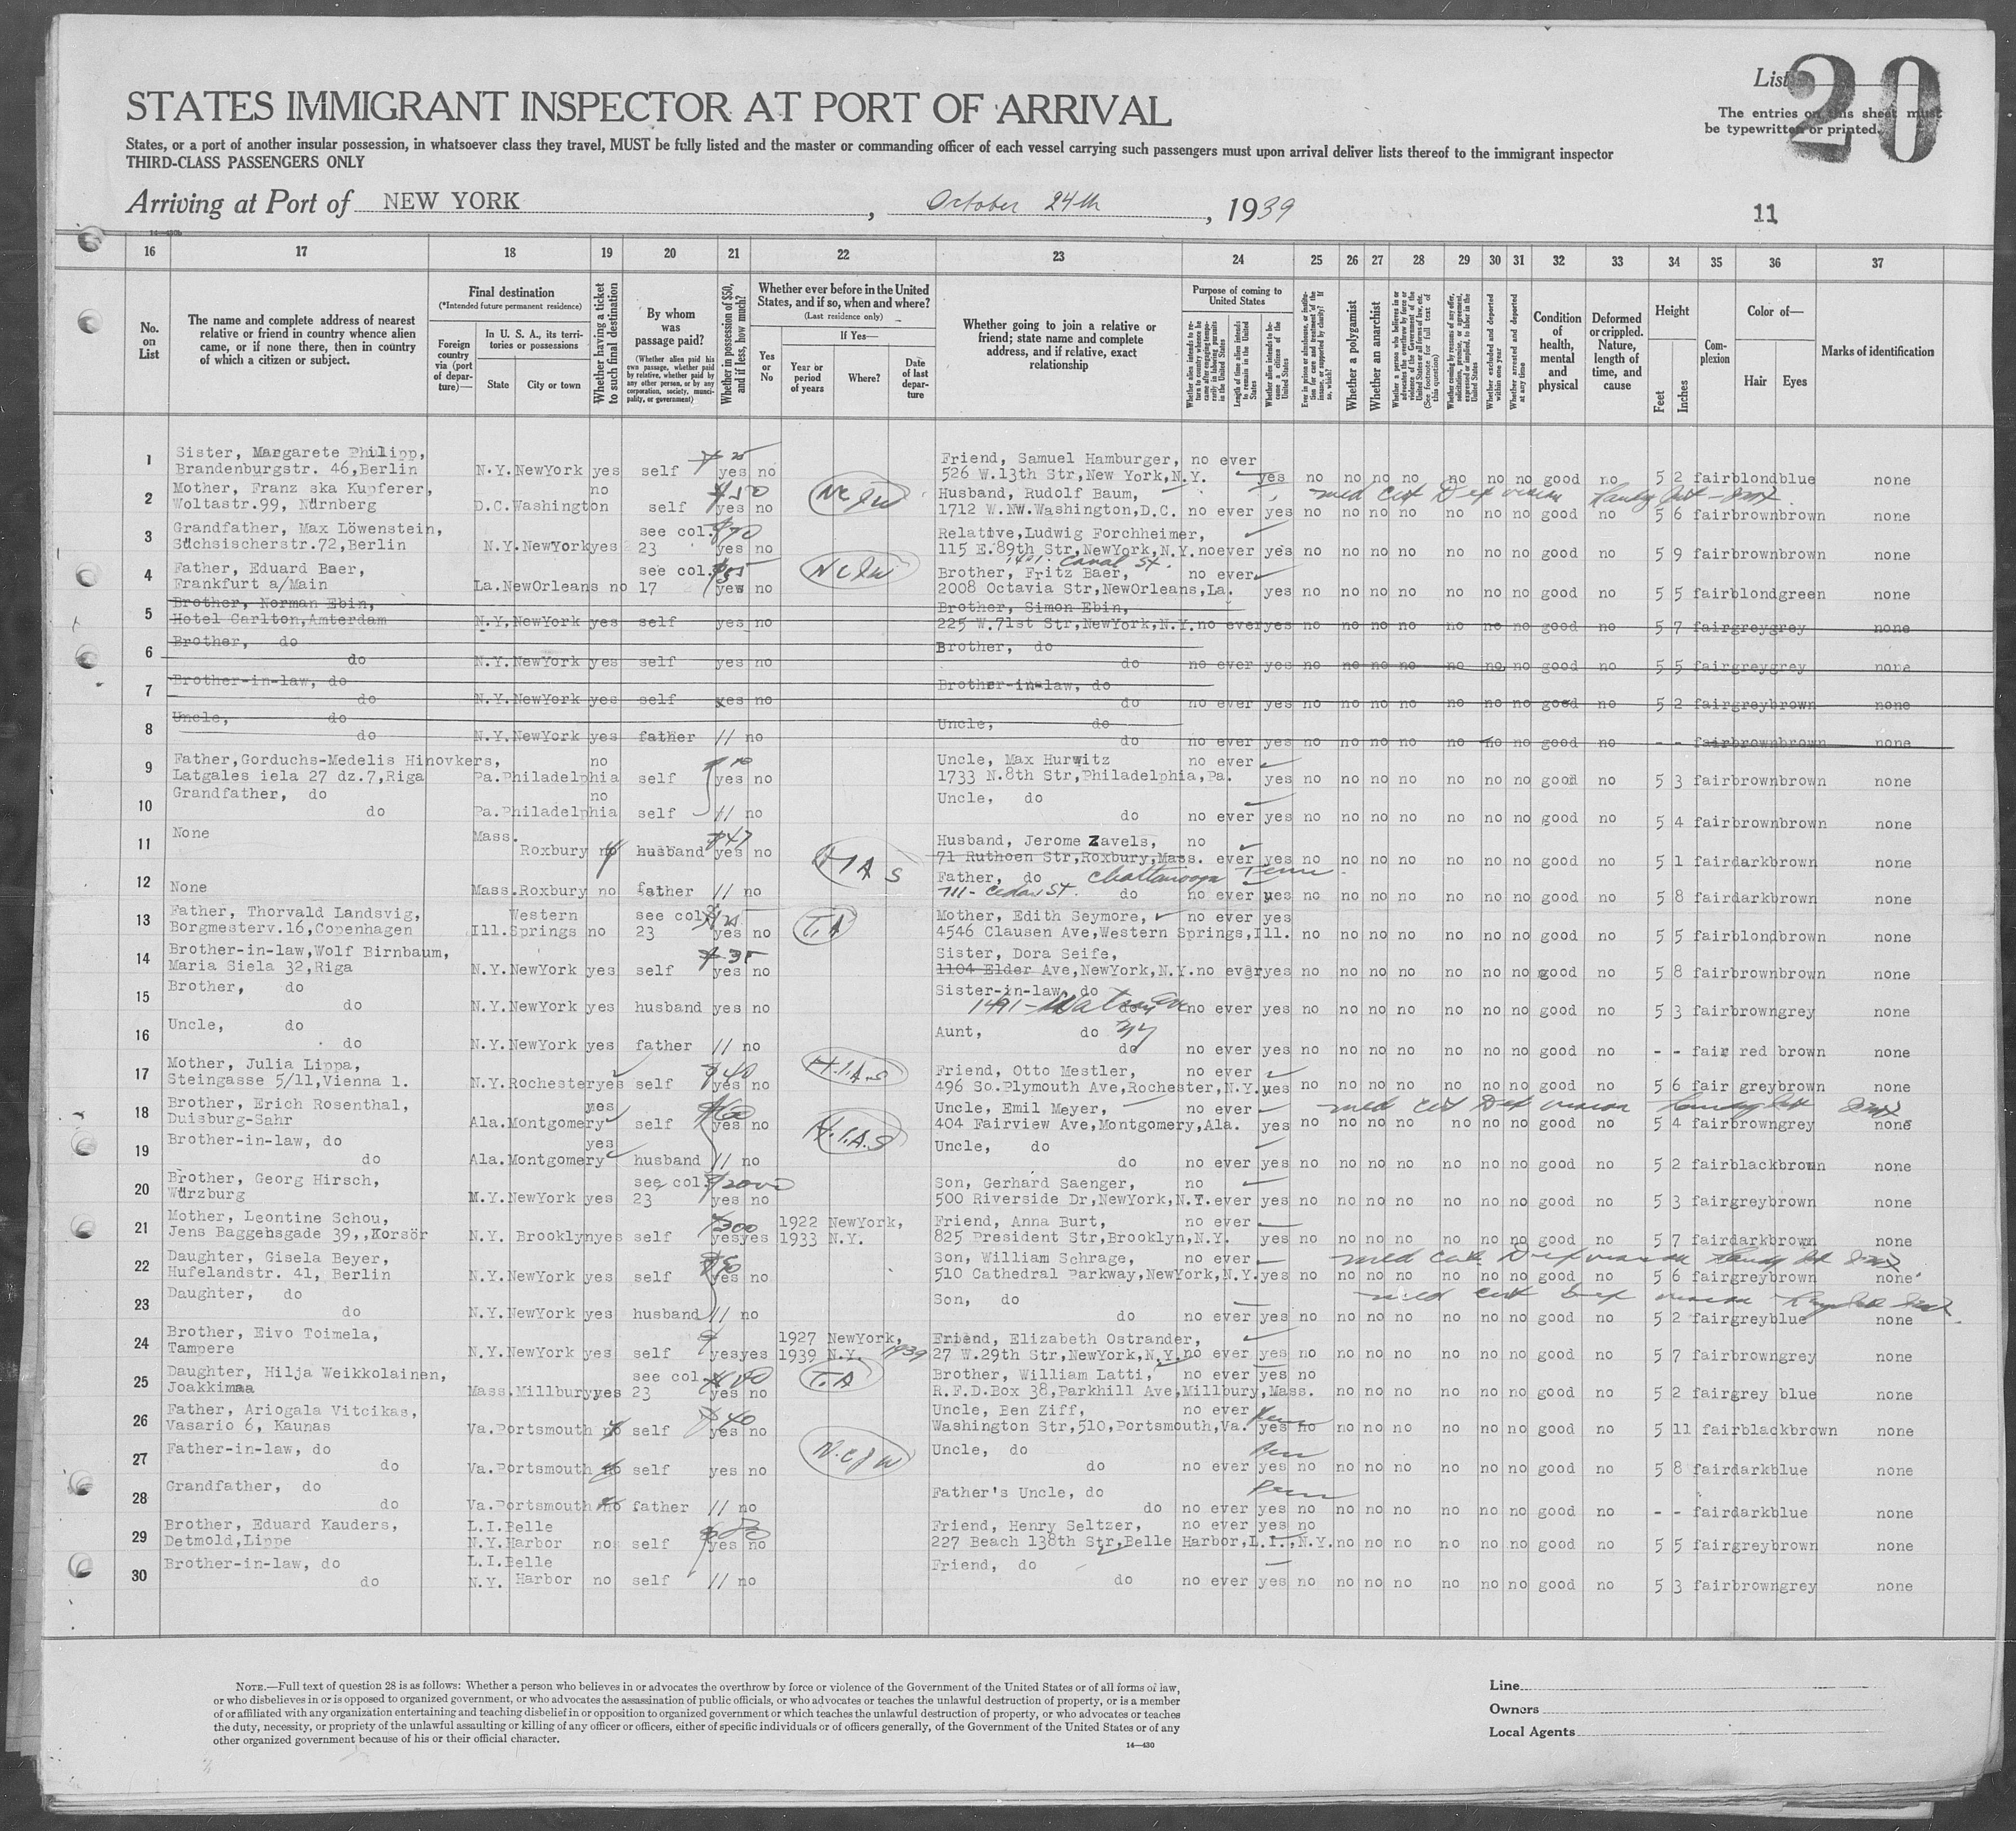 List
20
The entries on this sheet must
be typewritten or printed.
STATES IMMIGRANT INSPECTOR AT PORT OF ARRIVAL
States, or a port of another insular possession, in whatsoever class they travel, MUST be fully listed and the master or commanding officer of each vessel carrying such passengers must upon arrival deliver lists thereof to the immigrant inspector
THIRD-CLASS PASSENGERS ONLY
Arriving at Port of NEW YORK , October 24th , 1939
11
16 17 18 19 20 21 22 23 24 25 26 27 28 29 30 31 32 33 34 35 36 37
No. on List
The name and complete address of nearest relative or friend in country whence alien came, or if none there, then in country of which a citizen or subject.
Final destination
(*Intended future permanent residence)
Foreign country via (port of departure)—
In U. S. A., its territories or possessions
State
City or town
Whether having a ticket to such final destination
By whom was passage paid?
(Whether alien paid his own passage, whether paid by relative, whether paid by any other person, or by any corporation, society, municipality, or government)
Whether in possession of $50, and if less, how much?
Whether ever before in the United States, and if so, when and where?
(Last residence only)
Yes or No
If Yes—
Year or period of years
Where?
Date of last departure
Whether going to join a relative or friend; state name and complete address, and if relative, exact relationship
Purpose of coming to United States
Length of time alien intends to remain in the United States
Whether alien intends to become a citizen of the United States
Whether a polygamist
Whether an anarchist
Whether excluded and deported within one year
Whether arrested and deported at any time
Condition of health, mental and physical
Deformed or crippled. Nature, length of time, and cause
Height
Feet
Inches
Complexion
Color of—
Hair
Eyes
Marks of identification
1 Sister, Margarete Philipp, Friend, Samuel Hamburger, no ever
Brandenburgstr. 46,Berlin N.Y. NewYork yes self yes no 526 W.13th Str,New York,N.Y. yes no no no no no no no good no 5 2 fair blond blue none
2 Mother, Franz ska Kupferer, no Husband, Rudolf Baum,
Woltastr.99, Nürnberg D.C. Washington self yes no 1712 W.NW.Washington,D.C. no ever yes no no no no no no no good no 5 6 fair brown brown none
3 Grandfather, Max Löwenstein, see col. Relative,Ludwig Forchheimer,
Sächsischerstr.72,Berlin N.Y. NewYork yes 23 yes no 115 E.89th Str,NewYork,N.Y. no ever yes no no no no no no no good no 5 9 fair brown brown none
1401 Canal St.
4 Father, Eduard Baer, see col. Brother, Fritz Baer, no ever
Frankfurt a/Main La. NewOrleans no 17 yes no 2008 Octavia Str,NewOrleans,La. yes no no no no no no no good no 5 5 fair blond green none
5 Brother, Norman Ebin, Brother, Simon Ebin,
Hotel Carlton,Amterdam N.Y. NewYork yes self yes no 225 W.71st Str,NewYork,N.Y. no ever yes no no no no no no no good no 5 7 fair grey grey none
6 Brother, do Brother, do
do N.Y. NewYork yes self yes no do no ever yes no no no no no no no good no 5 5 fair grey grey none
7 Brother-in-law, do Brother-in-law, do
do N.Y. NewYork yes self yes no do no ever yes no no no no no no no good no 5 2 fair grey brown none
8 Uncle, do Uncle, do
do N.Y. NewYork yes father // no do no ever yes no no no no no no no good no - - fair brown brown none
9 Father,Gorduchs-Medelis Hinovkers, no Uncle, Max Hurwitz no ever
Latgales iela 27 dz.7,Riga Pa. Philadelphia self yes no 1733 N.8th Str,Philadelphia,Pa. yes no no no no no no no good no 5 3 fair brown brown none
10 Grandfather, do no Uncle, do
do Pa. Philadelphia self // no do no ever yes no no no no no no no good no 5 4 fair brown brown none
11 None Mass. Husband, Jerome Zavels, no
Roxbury no husband yes no 71 Ruthoen Str,Roxbury,Mass. ever yes no no no no no no no good no 5 1 fair dark brown none
12 Father, do Chattanooga Tenn.
None Mass. Roxbury no father // no 711- Cedar St. do no ever yes no no no no no no no good no 5 8 fair dark brown none
13 Father, Thorvald Landsvig, Western see col. Mother, Edith Seymore, no ever yes
Borgmesterv.16,Copenhagen Ill. Springs no 23 yes no T.A 4546 Clausen Ave,Western Springs,Ill. no no no no no no no good no 5 5 fair blond brown none
14 Brother-in-law,Wolf Birnbaum, Sister, Dora Seife,
Maria Siela 32,Riga N.Y. NewYork yes self yes no 1104 Elder Ave,NewYork,N.Y. no ever yes no no no no no no no good no 5 8 fair brown brown none
15 Brother, do Sister-in-law, do
do N.Y. NewYork yes husband yes no 1491- Watson Ave no ever yes no no no no no no no good no 5 3 fair brown grey none
16 Uncle, do Aunt, do NY
do N.Y. NewYork yes father // no do no ever yes no no no no no no no good no - - fair red brown none
17 Mother, Julia Lippa, H.I.A.S Friend, Otto Mestler, no ever
Steingasse 5/11,Vienna 1. N.Y. Rochester yes self 40 yes no 496 So.Plymouth Ave,Rochester,N.Y. yes no no no no no no no good no 5 6 fair grey brown none
18 Brother, Erich Rosenthal, yes 60 Uncle, Emil Meyer, no ever med cert Def vision
Duisburg-Sahr Ala. Montgomery self yes no H.I.A.S 404 Fairview Ave,Montgomery,Ala. yes no no no no no no no good no 5 4 fair brown grey none
19 Brother-in-law, do yes Uncle, do
do Ala. Montgomery husband // no do no ever yes no no no no no no no good no 5 2 fair black brown none
20 Brother, Georg Hirsch, see col. Son, Gerhard Saenger, no
Würzburg M.Y. NewYork yes 23 yes no 500 Riverside Dr,NewYork,N.Y. ever yes no no no no no no no good no 5 3 fair grey brown none
21 Mother, Leontine Schou, 300 1922 NewYork, Friend, Anna Burt, no ever
Jens Baggehsgade 39,,Korsör N.Y. Brooklyn yes self yes yes 1933 N.Y. 825 President Str,Brooklyn,N.Y. yes no no no no no no no good no 5 7 fair dark brown none
22 Daughter, Gisela Beyer, Son, William Schrage, no ever med cert Def vision
Hufelandstr. 41, Berlin N.Y. NewYork yes self yes no 510 Cathedral Parkway,NewYork,N.Y. yes no no no no no no no good no 5 6 fair grey brown none
23 Daughter, do Son, do med cert Def vision
do N.Y. NewYork yes husband // no do no ever yes no no no no no no no good no 5 2 fair grey blue none
24 Brother, Eivo Toimela, 1927 NewYork, Friend, Elizabeth Ostrander,
Tampere N.Y. NewYork yes self yes yes 1939 N.Y. 1939 27 W.29th Str,NewYork,N.Y. no ever yes no no no no no no no good no 5 7 fair brown grey none
25 Daughter, Hilja Weikkolainen, see col. Brother, William Latti, no ever yes no
Joakkimaa Mass. Millbury yes 23 yes no T.A R.F.D.Box 38,Parkhill Ave,Millbury,Mass. no no no no no no good no 5 2 fair grey blue none
26 Father, Ariogala Vitcikas, 40 Uncle, Ben Ziff, no ever
Vasario 6, Kaunas Va. Portsmouth no self yes no Washington Str,510,Portsmouth,Va. yes no no no no no no no good no 5 11 fair black brown none
27 Father-in-law, do Uncle, do
do Va. Portsmouth no self yes no do no ever yes no no no no no no no good no 5 8 fair dark blue none
28 Grandfather, do Father's Uncle, do
do Va. Portsmouth no father // no do no ever yes no no no no no no no good no - - fair dark blue none
29 Brother, Eduard Kauders, L.I. Belle Friend, Henry Seltzer, no ever yes no
Detmold,Lippe N.Y. Harbor no self yes no 227 Beach 138th Str,Belle Harbor,L.I.,N.Y. no no no no no no good no 5 5 fair grey brown none
30 Brother-in-law, do L.I. Belle Friend, do
do N.Y. Harbor no self // no do no ever yes no no no no no no no good no 5 3 fair brown grey none
NOTE.—Full text of question 28 is as follows: Whether a person who believes in or advocates the overthrow by force or violence of the Government of the United States or of all forms of law,
or who disbelieves in or is opposed to organized government, or who advocates the assassination of public officials, or who advocates or teaches the unlawful destruction of property, or is a member
of or affiliated with any organization entertaining and teaching disbelief in or opposition to organized government or which teaches the unlawful destruction of property, or who advocates or teaches
the duty, necessity, or propriety of the unlawful assaulting or killing of any officer or officers, either of specific individuals or of officers generally, of the Government of the United States or of any
other organized government because of his or their official character.
14—430
Line
Owners
Local Agents